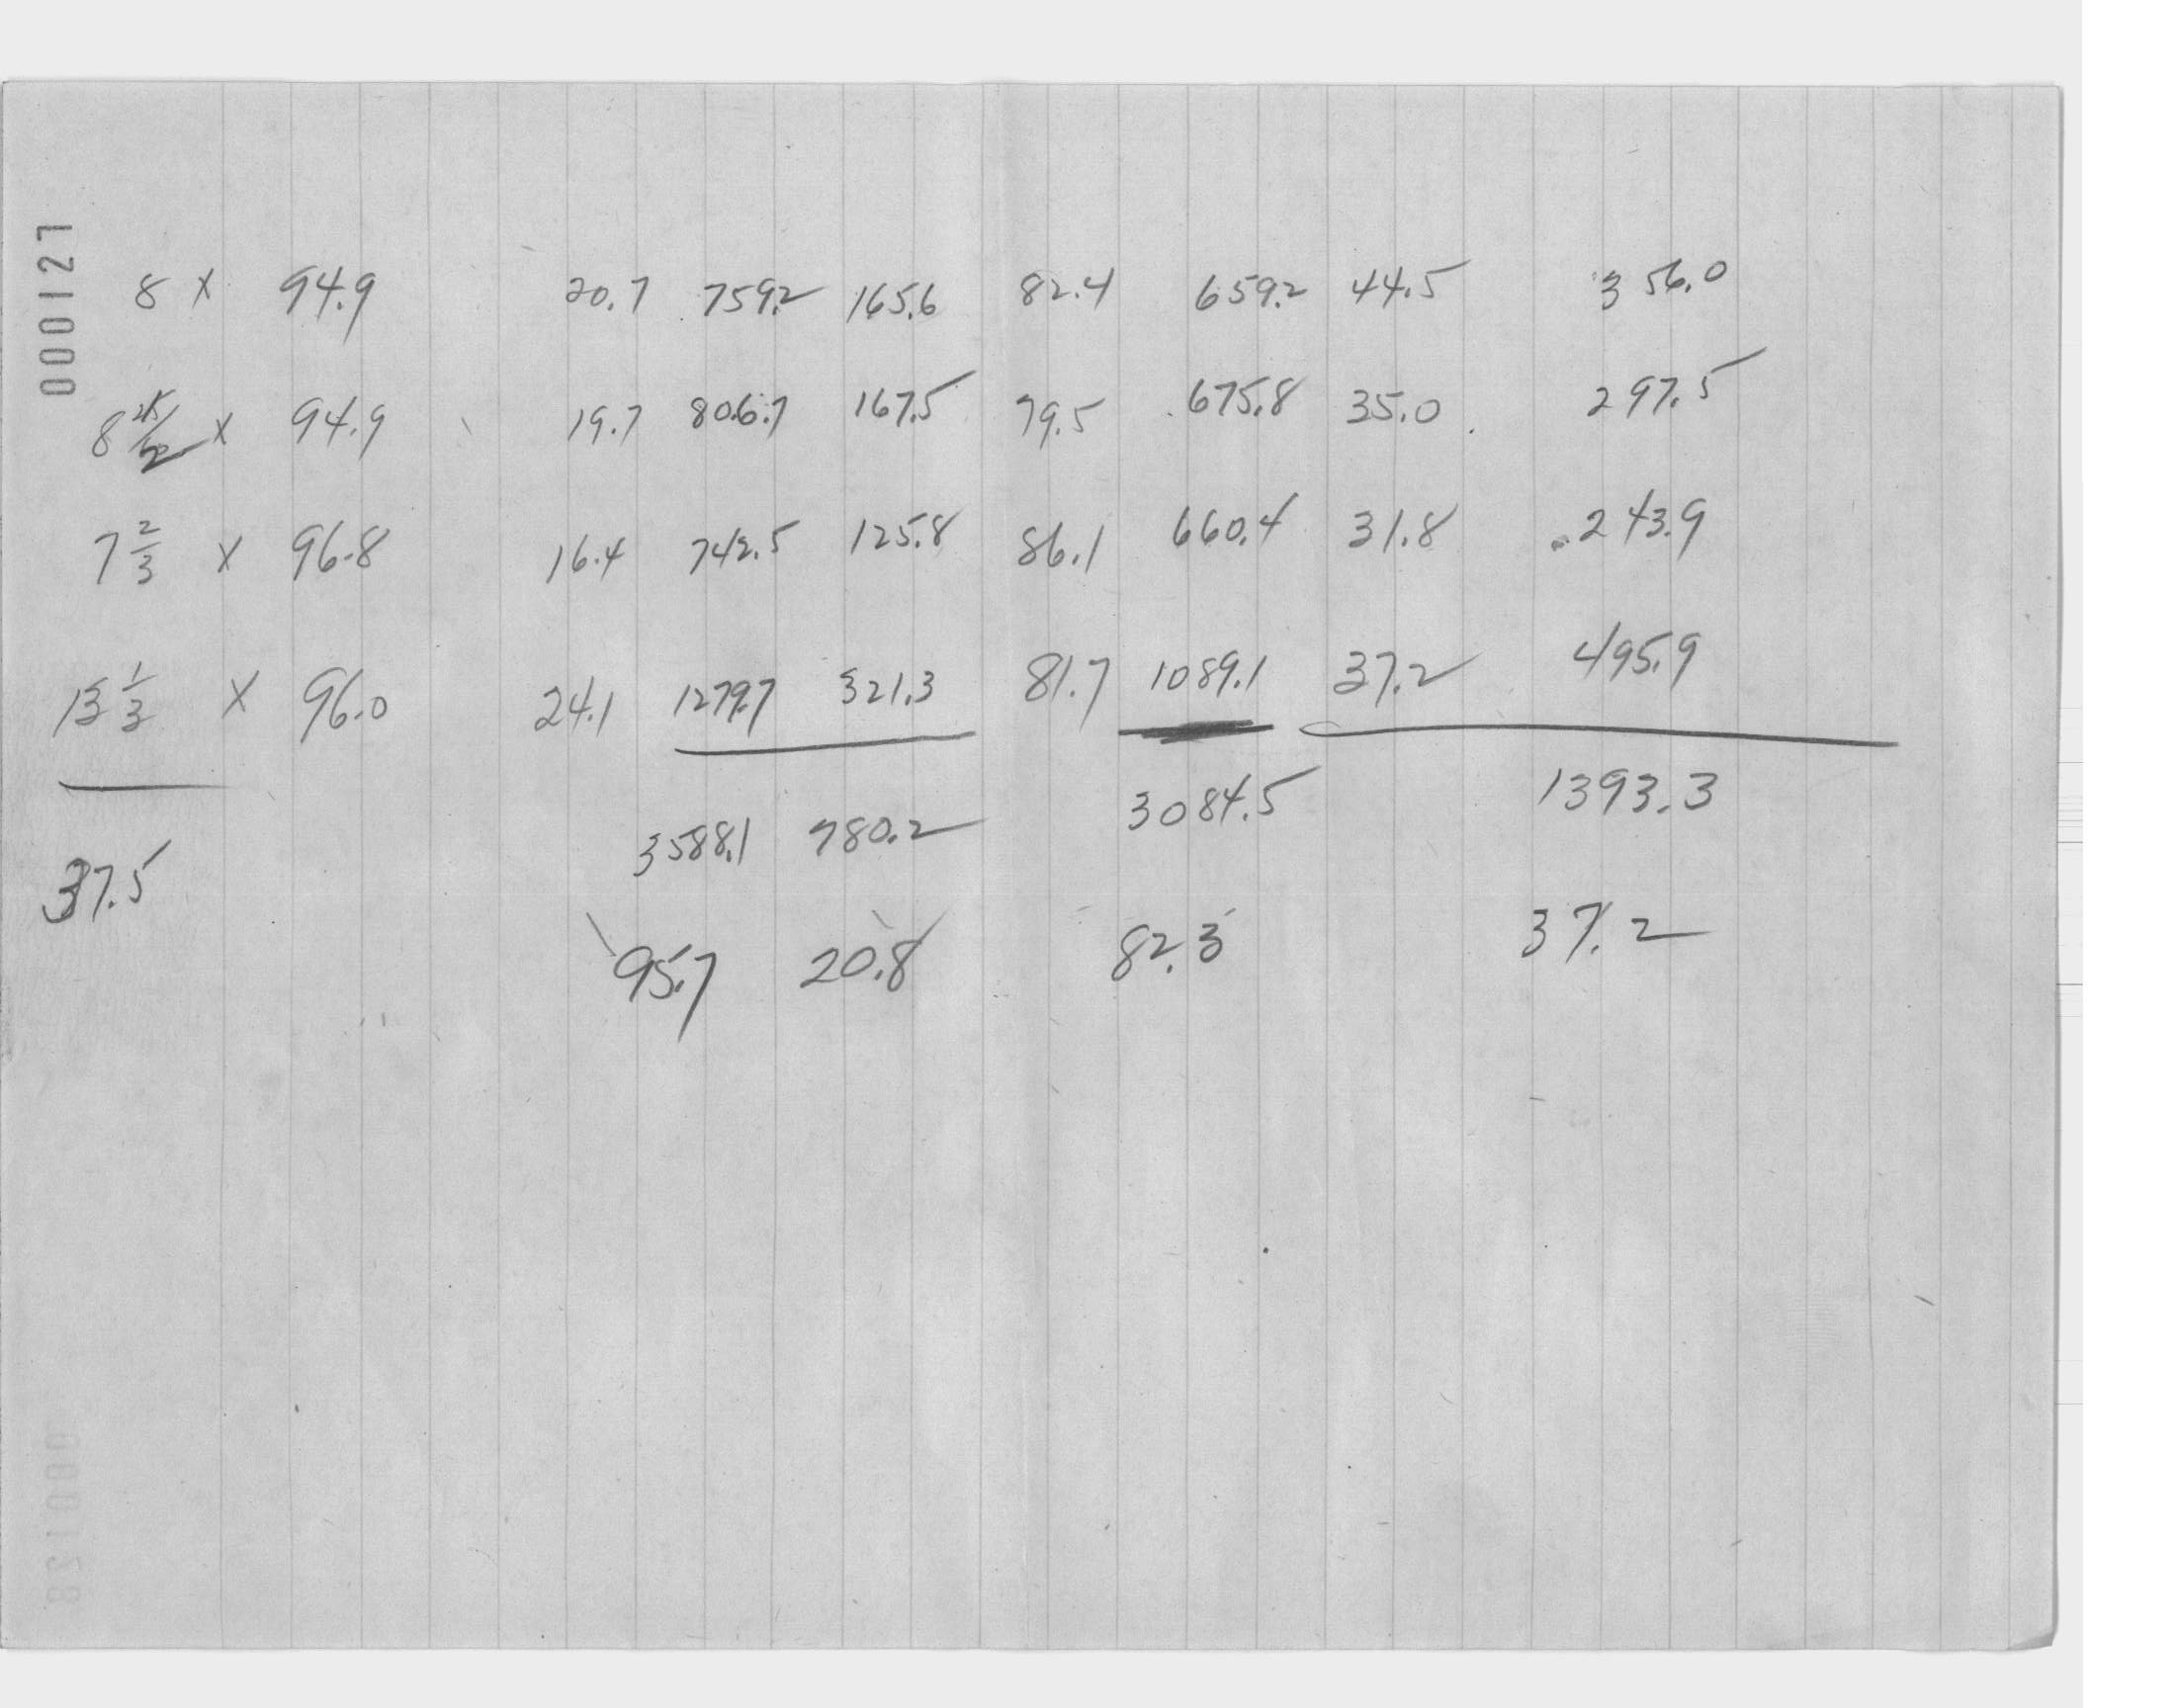 000127
8 x 94.9 20.7 759.2 165.6 82.4 659.2 44.5 356.0
8 1/2 x 94.9 19.7 806.7 167.5 79.5 675.8 35.0 297.5
7 2/3 x 96.8 16.4 742.5 125.8 86.1 660.4 31.8 243.9
13 1/3 x 96.0 24.1 1279.7 321.3 81.7 1089.1 37.2 495.9
37.5 3588.1 780.2 3084.5 1393.3
95.7 20.8 82.3 37.2
000128